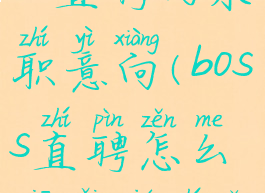 zhí yì xiàng
职意向(bos
zhí pìn zěn me
s直聘怎么